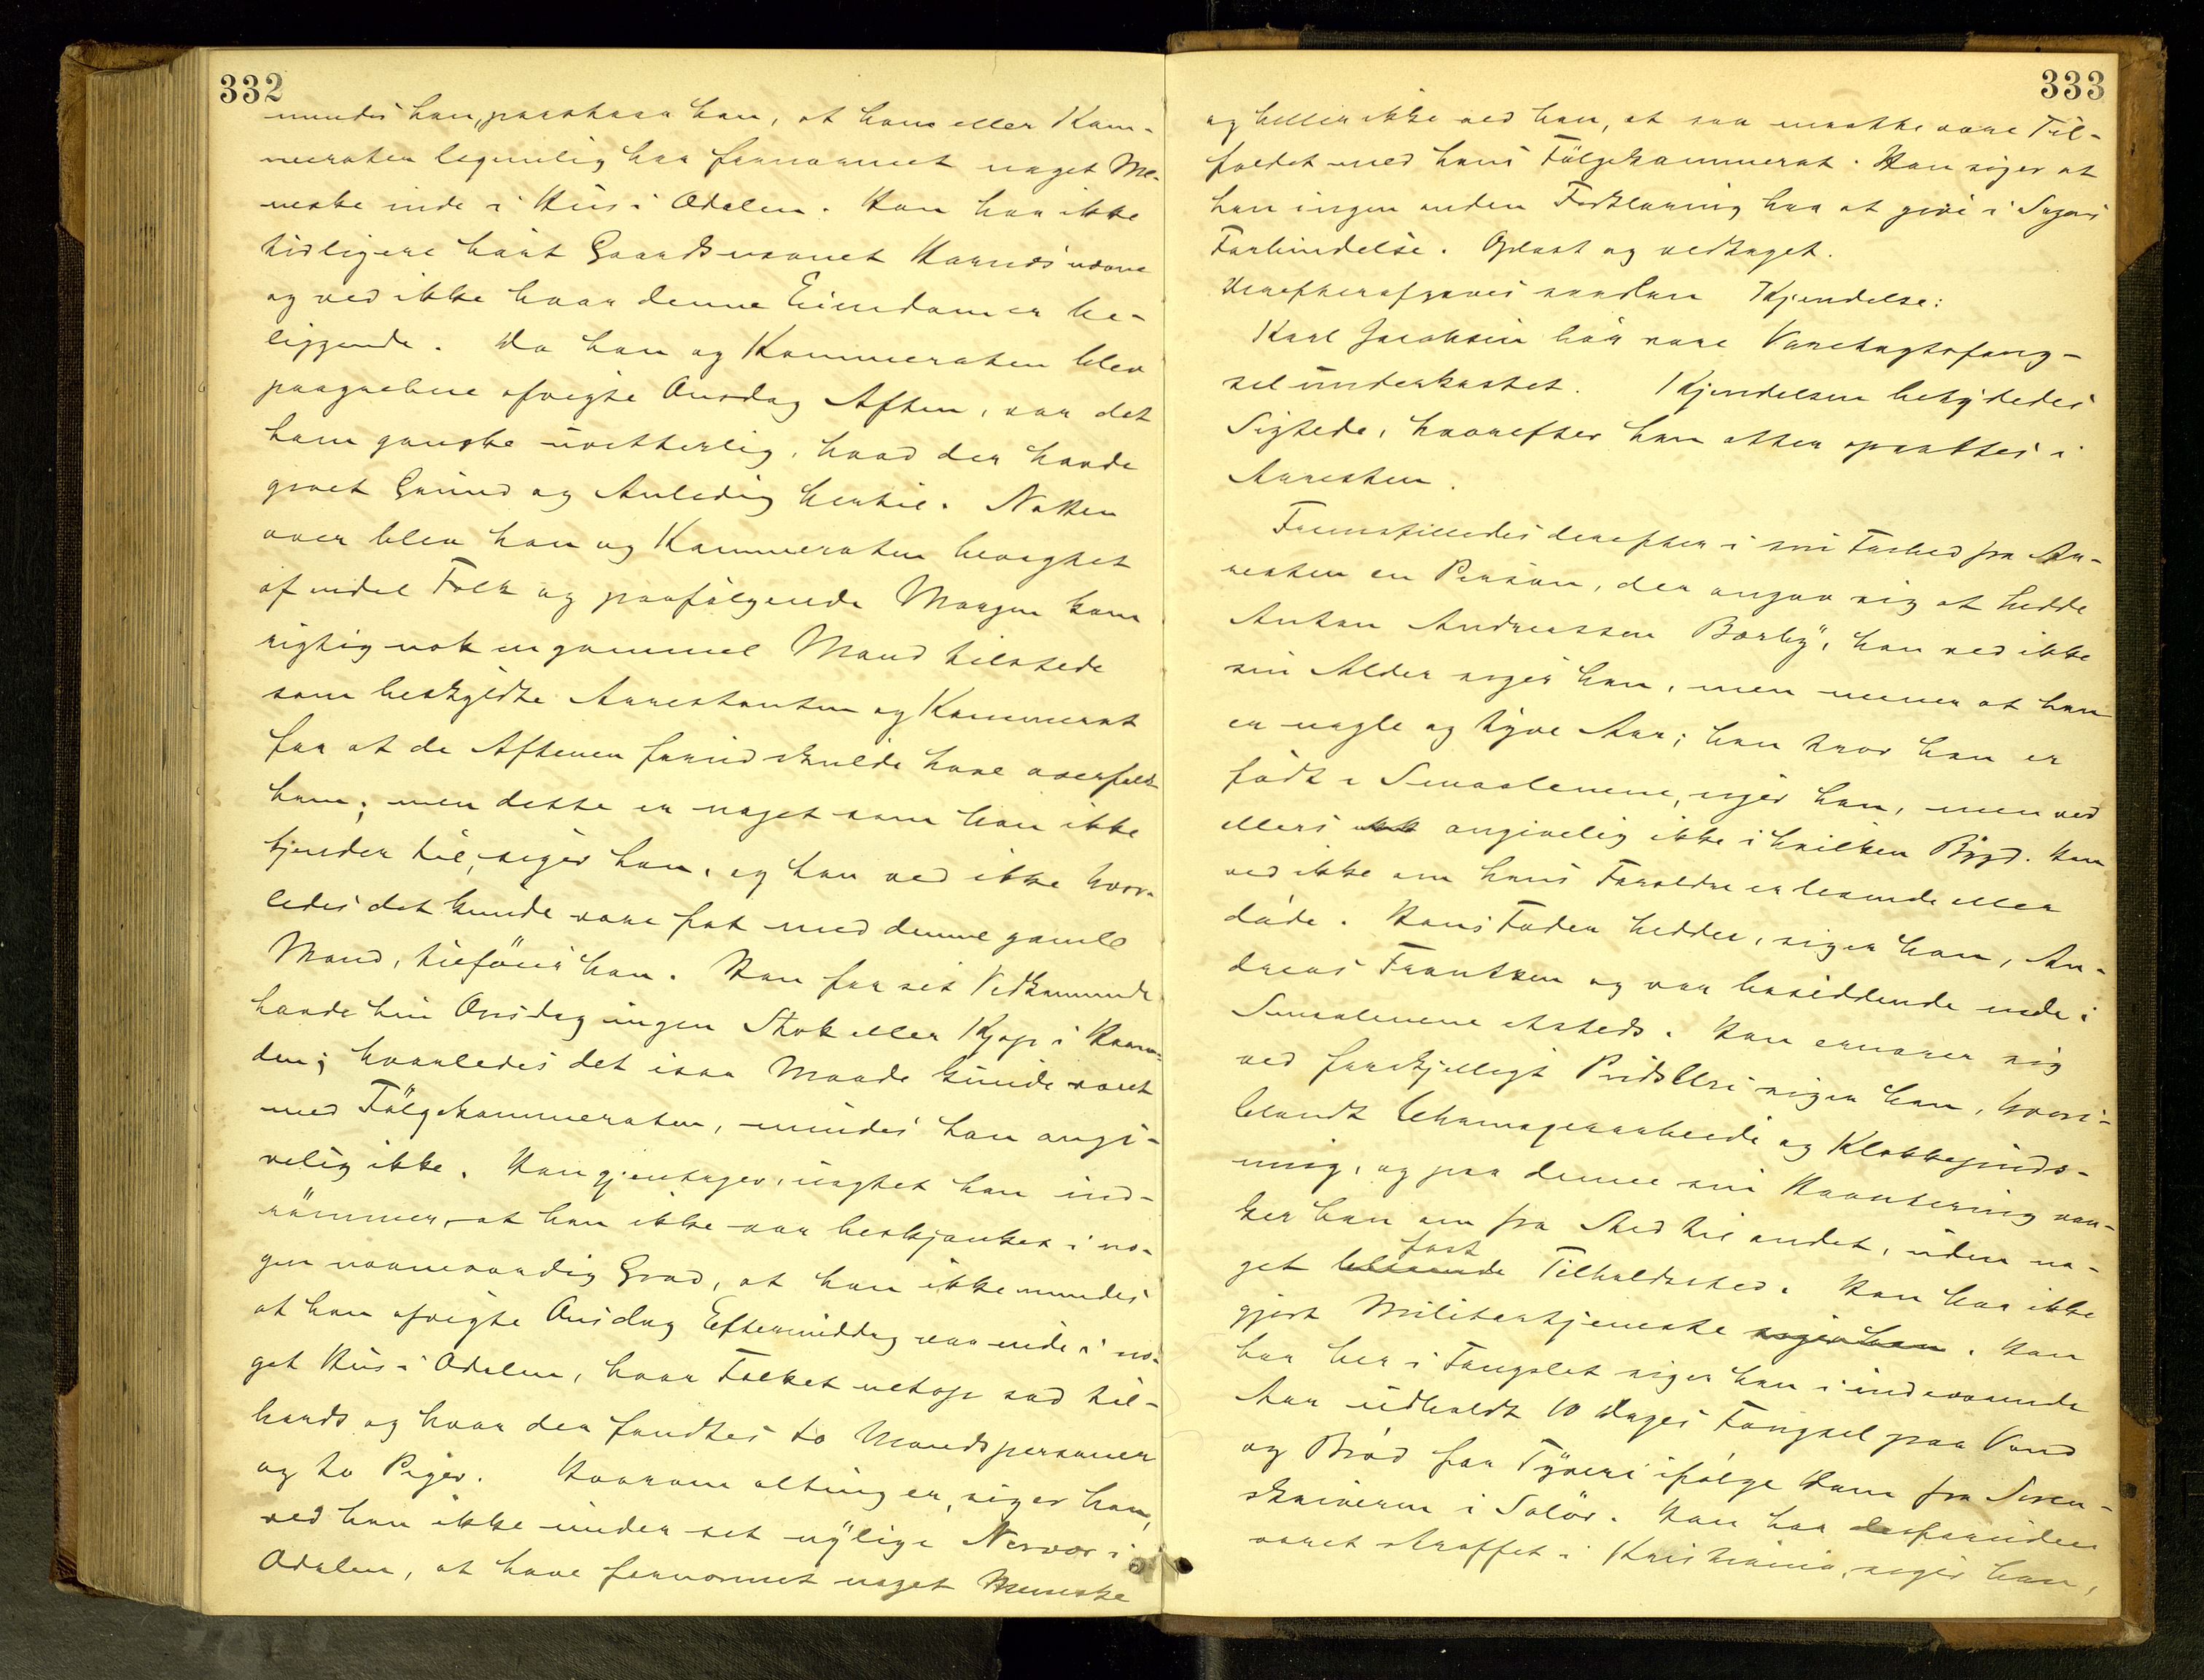 332
mindes han, paastaar han, at hans eller Kam-
meraten legemlig har fornærmet noget Me-
neske inde i Hus i Odalen. Han har ikke
tidligere hørt Gaardsnavnet Harnæs nævne
og ved ikke hvor denne Eiendom er be-
liggende. Da han og Kammeraten blev
paagrebne afvigte Onsdag Aften, var det
ham ganske uvitterlig, hvad der havde
givet Grund og Anledig hertil. Natten
over blev han og Kammeraten bevogtet
af endel Folk og paafølgende Morgen kom
rigtig nok en gammel Mand tilstede
som beskyldte Arrestanten og Kammerat
for at de Aftenen forud skulde have overfaldt
ham; men dette er noget som han ikke
kjender til, siger han, og han ved ikke hvor-
ledes det kunde være fat med denne gamle
Mand, tilføier han. Han for sit Vedkommende
havde hin Onsdag ingen Stok eller Kjæp i Haan-
den; hvorledes det i saa Maade kunde været
med Følgekammeraten, mindes han angi-
velig ikke. Han gjentager, uagtet han ind-
rømmer, at han ikke var beskjænket i no-
gen nævneværdig Grad, at han ikke mindes
at han afvigte Onsdag Eftermiddag var inde i no-
get Hus i Odalen, hvor Folket netop sad til-
bords og hvor der fandtes to Mandspersoner
og to Piger. Hvorom alting er, siger han,
ved han ikke under sit nylige Nærvær i
Odalen, at have fornærmet noget Meneske
333
og heller ikke ved han, at saa maatte være Til-
fældet med hans Følgekammerat. Han siger at
han ingen anden Forklaring har at give i Sagens
Forbindelse. Oplæst og vedtaget.
Derefter afgaves saadan Kjendelse:
Karl Jacobsen bør være Varetægtsfæng-
sel underkastet. Kjendelsen betydedes
Sigtede, hvorefter han atter opsattes i
Arresten.
Fremstilledes derefter i sin Frihed fra Ar-
resten en Person, der angav sig at hedde
Anton Andreassen Børby, han ved ikke
sin Alder siger han, men mener at han
er nogle og tyve Aar; han tror han er
født i Smaalenene, siger han, men ved
ellers angivelig ikke i hvilken Bygd. Han
ved ikke om hans Forældre er levende eller
døde. Hans Fader hedder, siger han, An-
dreas Frantsen og var bosiddende nede i
Smaalenene etsteds. Han ernærer sig
ved forskjelligt Pusleri siger han, hvori-
blandt Uhrmagerarbeide og Klokkepuds-
ning, og paa denne sin Haandtering van-
ker han om fra Sted til andet, uden no-
get fast Tilholdssted. Han har ikke
gjort Militærtjeneste siger han. Han
har her i Fængslet siger han i indeværende
Aar udholdt 10 Dages Fængsel paa Vand
og Brød for Tyveri ifølge Dom fra Soren-
skriveren i Solør. Han har desforuden
været straffet i Kristiania, siger han,